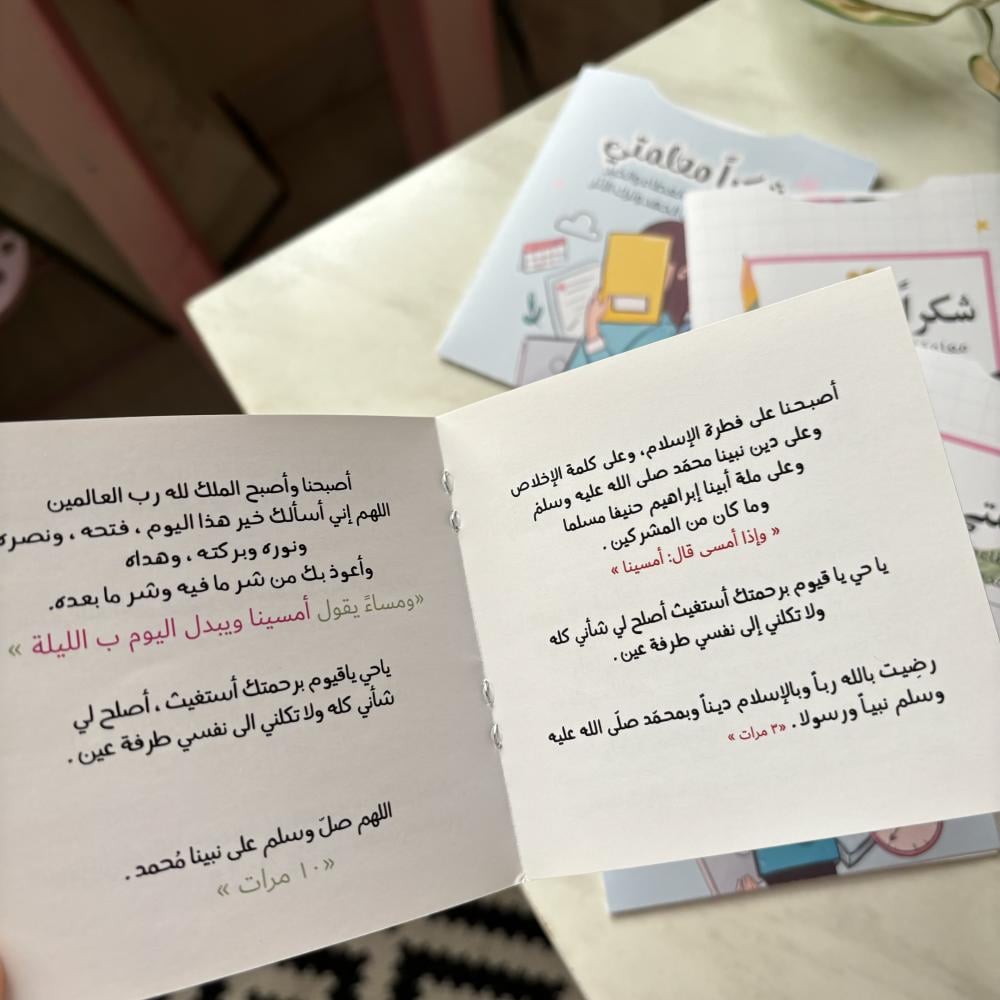 أصبحنا على فطرة الإسلام، وعلى كلمة الإخلاص
وعلى دين نبينا محمّد صلى الله عليه وسلمْ
وعلى ملة أبينا إبراهيم حنيفا مسلما
وما كان من المشركين .
« وإذا أمسى قال: أمسينا »
يا حي يا قيوم برحمتك أستغيث أصلح لي شأني كله
ولا تكلني إلى نفسي طرفة عين .
رضِيت بالله رباً وبالإسلام ديناً وبمحمّد صلّى الله عليه
وسلم نبياً ورسولا. «٣ مرات »
أصبحنا وأصبح الملك لله رب العالمين
اللهم إني أسألك خير هذا اليوم ، فتحه ، ونصره
ونوره وبركته ، وهداه
وأعوذ بك من شر ما فيه وشر ما بعده.
«ومساءً يقول أمسينا ويبدل اليوم ب الليلة »
ياحي ياقيوم برحمتك أستغيث ، أصلح لي
شأني كله ولا تكلني الى نفسي طرفة عين .
اللهم صلّ وسلم على نبينا مُحمد .
«١٠ مرات »
شكراً معلمتي
شكراً